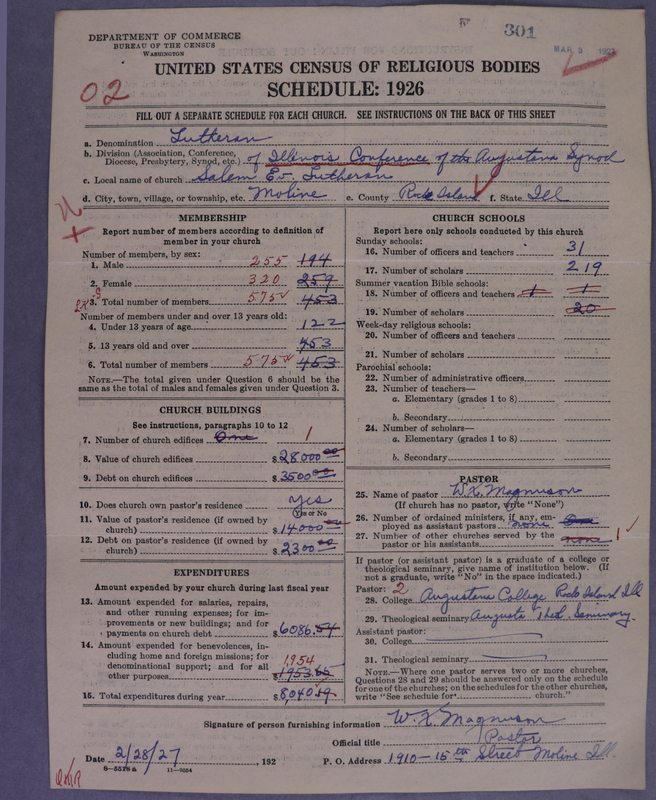 301
MAR 3 1927
DEPARTMENT OF COMMERCE
BUREAU OF THE CENSUS
WASHINGTON
UNITED STATES CENSUS OF RELIGIOUS BODIES
SCHEDULE: 1926
02
FILL OUT A SEPARATE SCHEDULE FOR EACH CHURCH. SEE INSTRUCTIONS ON THE BACK OF THIS SHEET
a. Denomination Lutheran
b. Division (Association, Conference, Diocese, Presbytery, Synod, etc.) of Illinois Conference of the Augustana Synod
c. Local name of church Salem Ev. Lutheran
d. City, town, village, or township, etc. Moline e. County Rock Island f. State Ill
MEMBERSHIP
Report number of members according to definition of
member in your church
Number of members, by sex:
1. Male 255 194
2. Female 320 259
3. Total number of members 575 453
Number of members under and over 13 years old:
4. Under 13 years of age 122
5. 13 years old and over 453
6. Total number of members 575 453
NOTE.—The total given under Question 6 should be
same as the total of males and females given under Question 3.
CHURCH BUILDINGS
See instructions, paragraphs 10 to 12
7. Number of church edifices One 1
8. Value of church edifices $28000 00
9. Debt on church edifices $3500 00
10. Does church own pastor's residence yes
Yes or No
11. Value of pastor's residence (if owned by
church) $14000 00
12. Debt on pastor's residence (if owned by
church) $2300 00
EXPENDITURES
Amount expended by your church during last fiscal year
13. Amount expended for salaries, repairs,
and other running expenses; for im-
provements or new buildings; and for
payments on church debt $6086.54
14. Amount expended for benevolences, in-
cluding home and foreign missions; for
denominational support; and for all 1,954
other purposes $1953.65
15. Total expenditures during year $8,040 19
CHURCH SCHOOLS
Report here only schools conducted by this church
Sunday schools:
16. Number of officers and teachers 31
17. Number of scholars 219
Summer vacation Bible schools:
18. Number of officers and teachers 1 1
19. Number of scholars 20
Week-day religious schools:
20. Number of officers and teachers
21. Number of scholars
Parochial schools:
22. Number of administrative officers
23. Number of teachers—
a. Elementary (grades 1 to 8)
b. Secondary
24. Number of scholars—
a. Elementary (grades 1 to 8)
b. Secondary
PASTOR
25. Name of pastor W. X. Magnuson
(If church has no pastor, write "None")
26. Number of ordained ministers, if any, em-
ployed as assistant pastors none One
27. Number of other churches served by the
pastor or his assistants none 1
If pastor (or assistant pastor) is a graduate of a college or
theological seminary, give name of institution below. (If
not a graduate, write "No" in the space indicated.)
Pastor: 2
28. College Augustana College Rock Island Ill
29. Theological seminary Augusta Theol. Seminary.
Assistant pastor:
30. College
31. Theological seminary
NOTE.—Where one pastor serves two or more churches,
Questions 28 and 29 should be answered only on the schedule
for one of the churches; on the schedules for the other churches,
write "See schedule for church."
Signature of person furnishing information W. X. Magnuson
Official title Pastor
Date 2/28/27, 192 P. O. Address 1910-15th Street Moline Ill.
8-5518a 11-9084